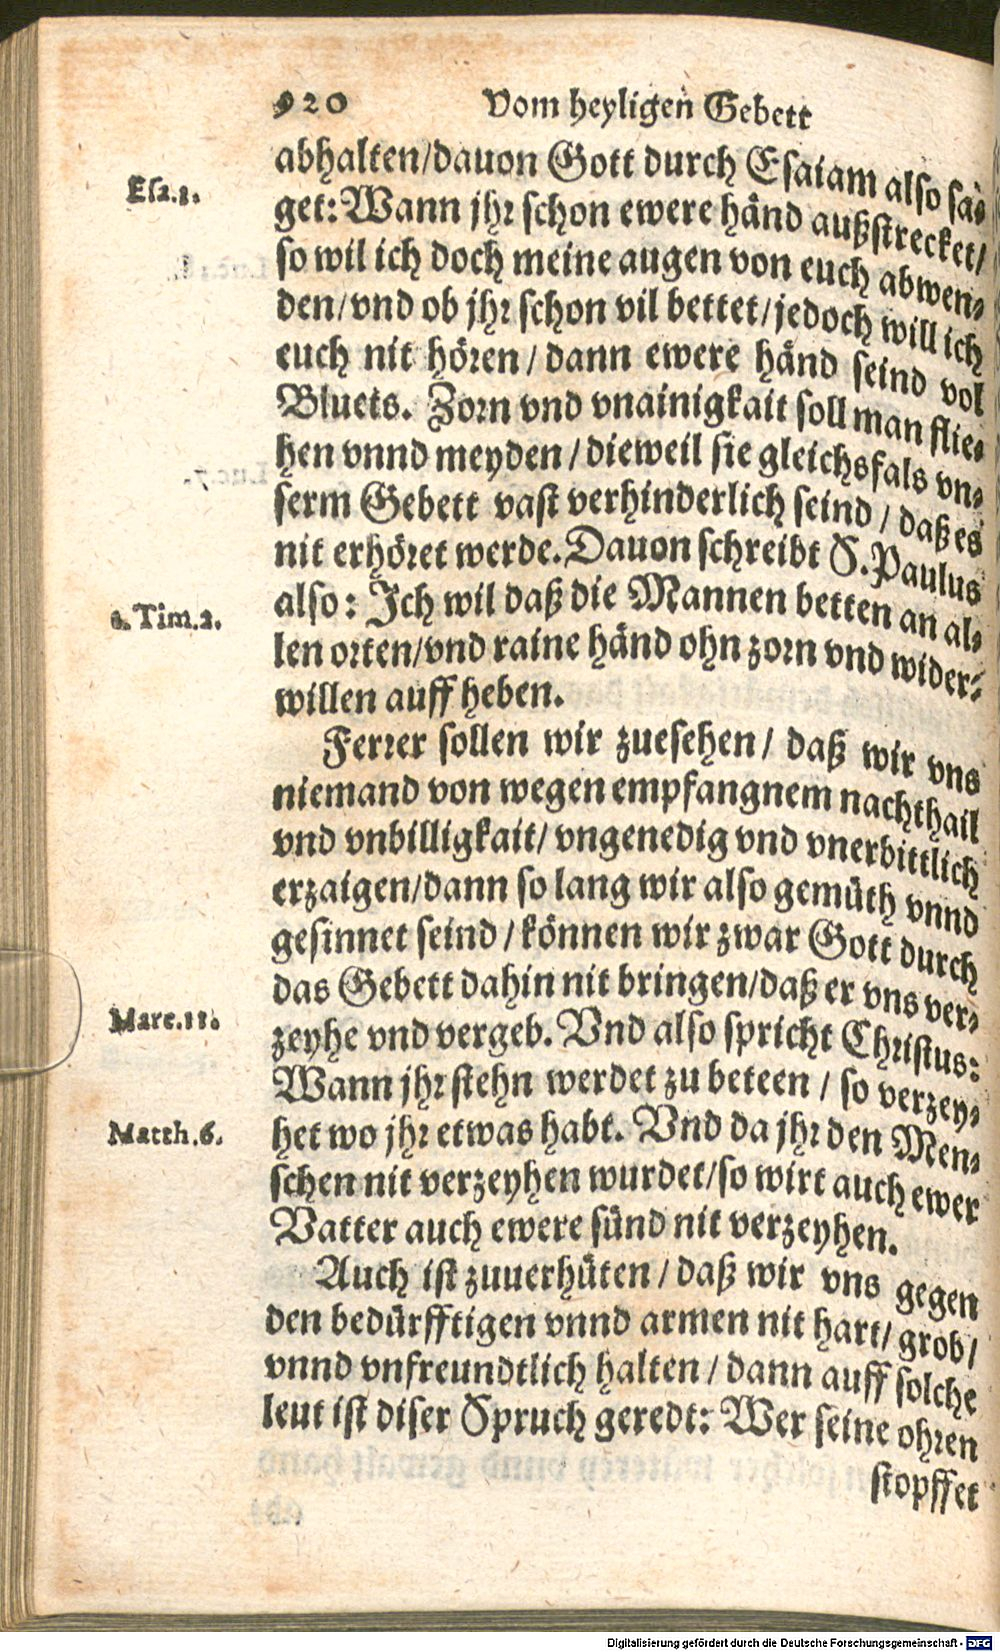 920 Vom heyligen Gebett
abhalten/dauon Gott durch Esaiam also sa-
Esa.1.
get: Wann jhr schon ewere händ außstrecket/
so wil ich doch meine augen von euch abwen-
den/vnd ob jhr schon vil bettet/jedoch will ich
euch nit hören/dann ewere händ seind vol
Bluets. Zorn vnd vnainigkait soll man flie-
hen vnnd meyden/dieweil sie gleichsfals vn-
serm Gebett vast verhinderlich seind/daß es
nit erhöret werde. Dauon schreibt S. Paulus
1. Tim.2.
also: Ich wil daß die Mannen betten an al-
len orten/vnd raine händ ohn zorn vnd wider-
willen auff heben.
Ferrer sollen wir zuesehen/ daß wir vns
niemand von wegen empfangnem nachthail
vnd vnbilligkait/ vngenedig vnd vnerbittlich
erzaigen/dann so lang wir also gemüth vnnd
gesinnet seind/können wir zwar Gott durch
das Gebett dahin nit bringen/daß er vns ver-
Marc.11.
zeyhe vnd vergeb. Vnd also spricht Christus:
Wann jhr stehn werdet zu beteen/ so verzey-
Matth.6.
het wo jhr etwas habt. Vnd da jhr den Men-
schen nit verzeyhen wurdet/so wirt auch ewer
Vatter auch ewere sünd nit verzeyhen.
Auch ist zuuerhüten/daß wir vns gegen
den bedürfftigen vnnd armen nit hart/grob/
vnnd vnfreundtlich halten/dann auff solche
leut ist diser Spruch geredt: Wer seine ohren
stopffet
Digitalisierung gefördert durch die Deutsche Forschungsgemeinschaft - DFG